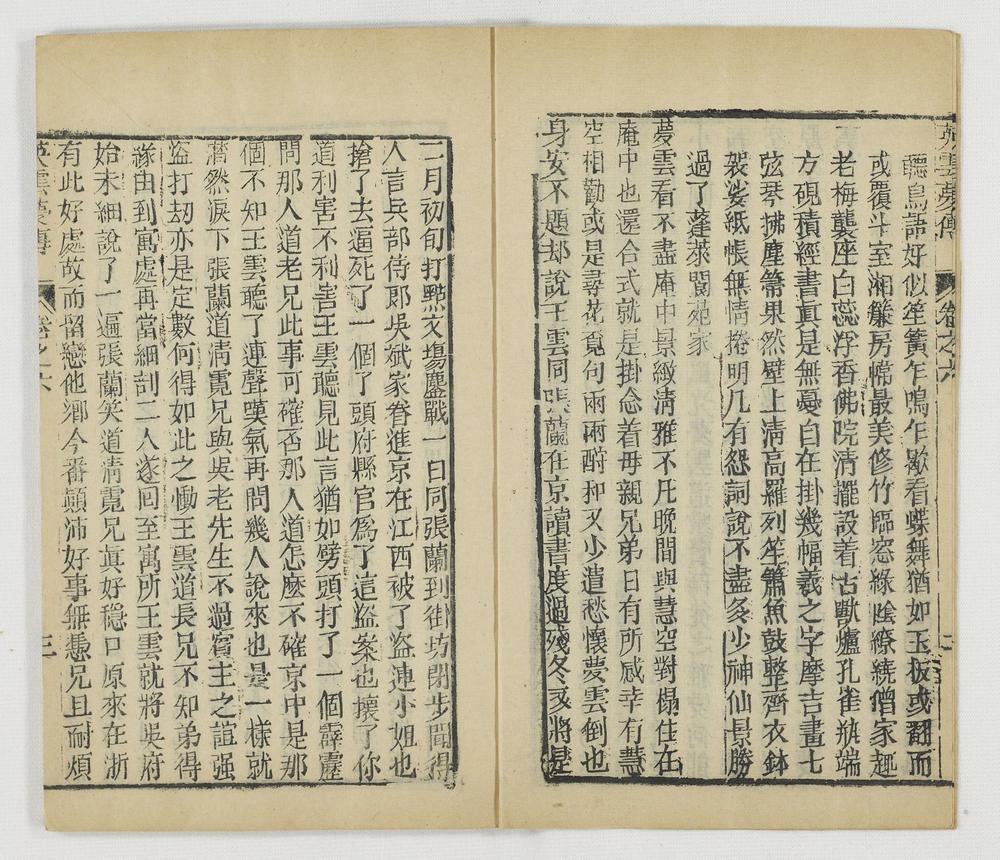 英雲夢傳
卷之六
二
聽鳥語好似笙簧乍鳴乍歇看蝶舞猶如玉板或翻而
或覆斗室湘簾房幃最美修竹臨窓綠陰繚繞僧家趣
老梅襲座白蕊浮香佛院清擺設着古獸爐孔雀瓶端
方硯積經書真是無憂自在掛幾幅羲之字摩吉畫七
弦琴拂塵箒果然壁上清高羅列笙簫魚鼓整齊衣鉢
袈裟紙帳無情捲明几有怨詞說不盡多少神仙景勝
過了蓬萊閬苑家
夢雲看不盡庵中景緻清雅不凡晚間與慧空對榻住在
庵中也還合式就是掛念着母親兄弟日有所感幸有慧
空相勸或是尋花覓句雨雨酧和又少遣愁懷夢雲倒也
身安不題却說王雲同張蘭在京讀書度過殘冬又將是
二月初旬打點文塲鏖戰一日同張蘭到街坊閒步聞得
人言兵部侍郎吳斌家眷進京在江西被了盗連小姐也
搶了去逼死了一個了頭府縣官爲了這盗案也壞了你
道利害不利害王雲聽見此言猶如劈頭打了一個霹靂
問那人道老兄此事可確否那人道怎麼不確京中是那
個不知王雲聽了連聲嘆氣再問幾人說來也是一樣就
潸然淚下張蘭道淸霓兄與吳老先生不過賓主之誼强
盗打劫亦是定數何得如此之慟王雲道長兄不知弟得
緣由到寓處再當細剖二人遂囘至寓所王雲就將吳府
始末細說了一遍張蘭笑道淸霓兄眞好穩口原來在浙
有此好處故而留戀他鄉今番顛沛好事無慿兄且耐煩
英雲夢傳
卷之六
三